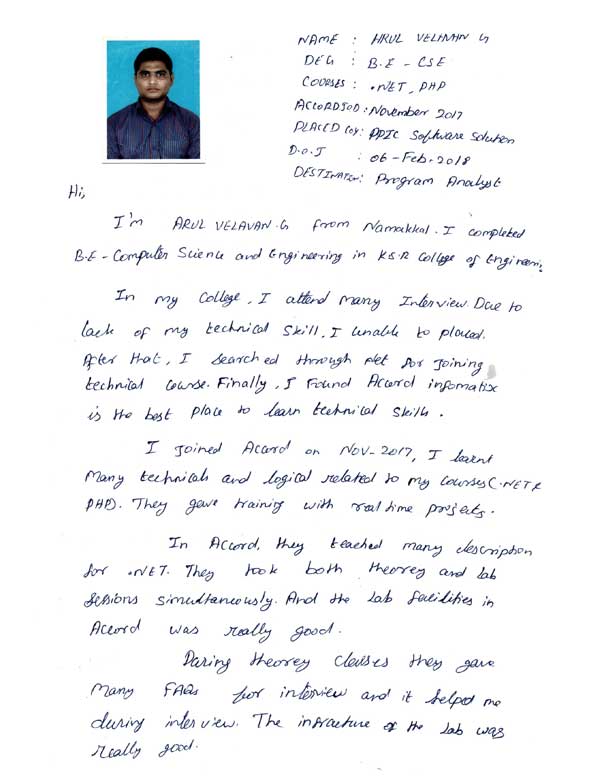 NAME : ARUL VELAVAN G
DEG : B.E - CSE
COURSES : .NET, PHP
ACCORD JOD : November 2017
PLACED COY : PPIC Software Solution
D.O.J : 06 - Feb - 2018
DESTINATION : Program Analyst
Hi,
I'm ARUL VELAVAN.G from Namakkal. I completed
B.E - Computer Science and Engineering in K.S.R College of Engineering.
In my College, I attend many Interview. Due to
lack of my technical skill, I unable to placed.
After that, I searched through Net for joining
technical course. Finally, I Found Accord infomatix
is the best place to learn technical skills.
I joined Accord on NOV-2017, I learnt
many technicals and logical related to my courses (.NET &
PHP). They gave training with real time projects.
In Accord, they teached many description
for .NET. They took both theorey and lab
sessions simultaneously. And the Lab facilities in
Accord was really good.
During theorey classes they gave
many FAQs for interview and it helped me
during interview. The infracture of the Lab was
really good.